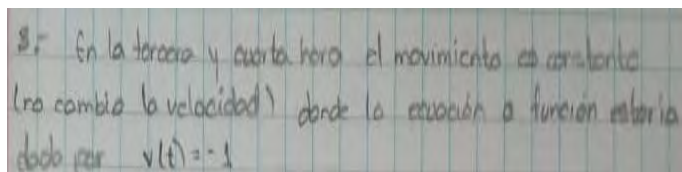 3.- En la tercera y cuarta hora el movimiento es constante
(no cambia la velocidad) donde la ecuación o función estaria
dado por v(t) = -1